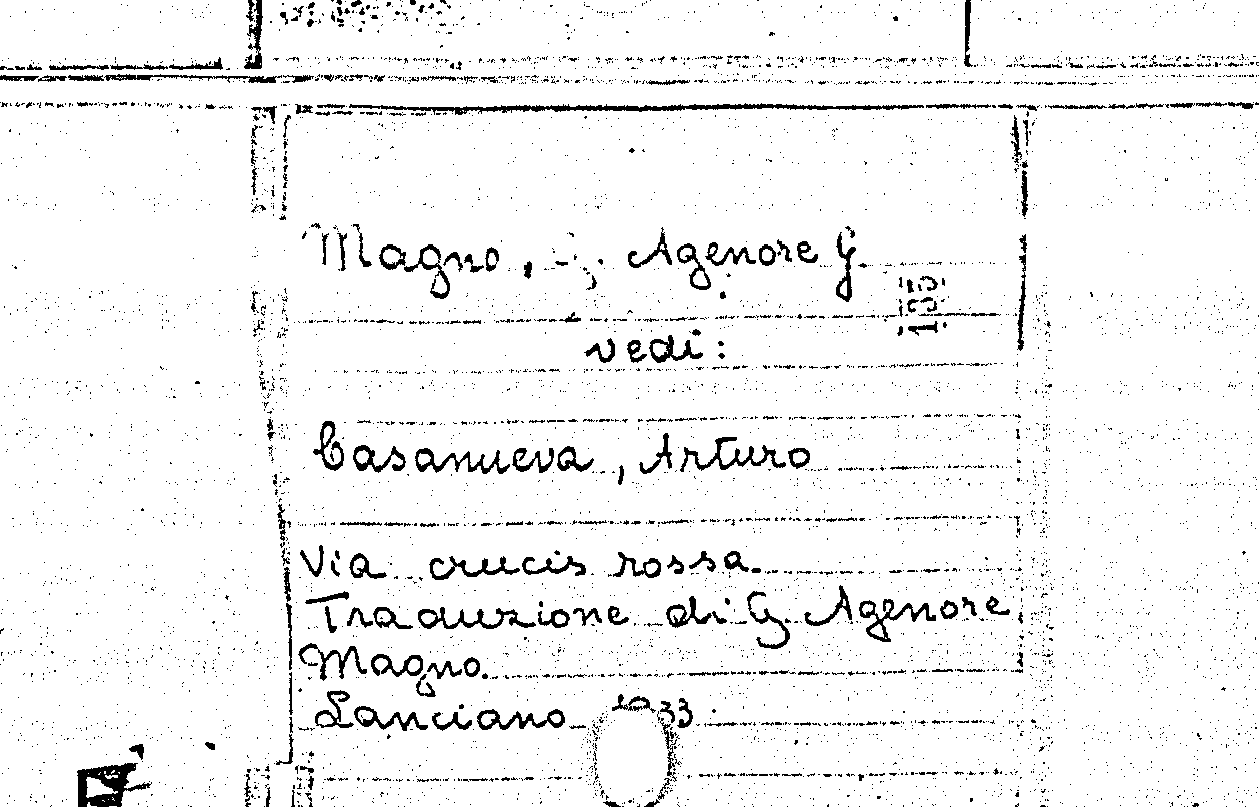 Magno, Agenore G.
vedi:
Casanueva, Arturo
Via crucis rossa.
Traduzione di G. Agenore
Magno.
Lanciano 1933.